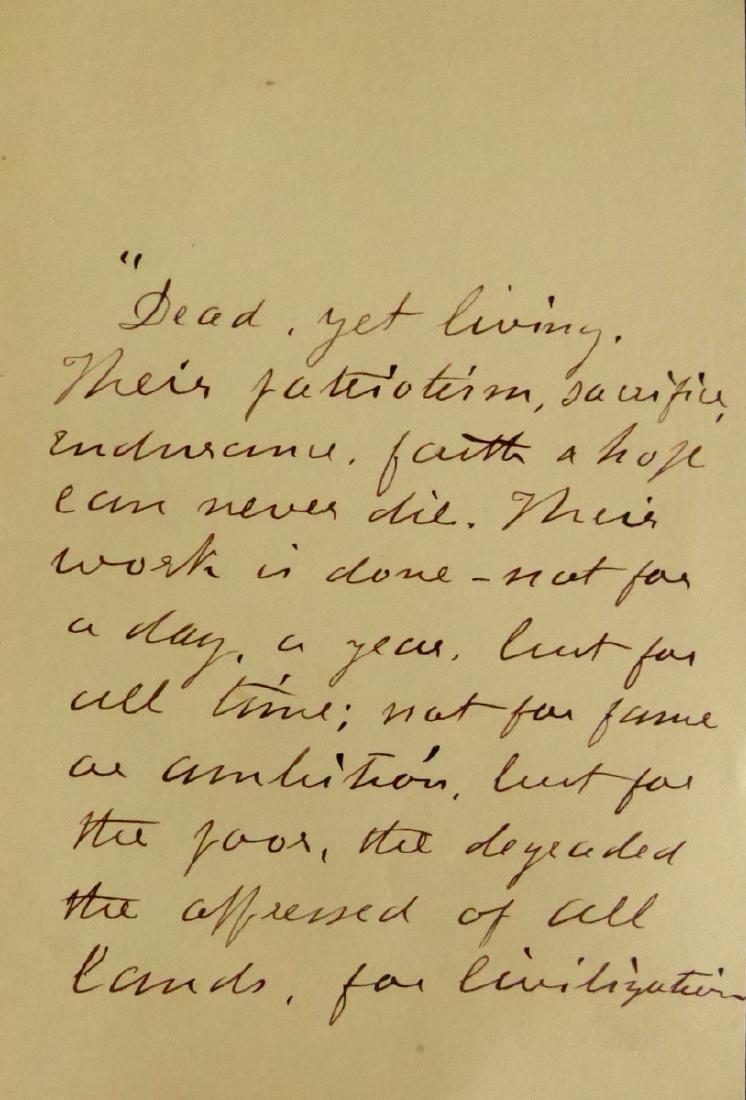 "Dead, yet living.
Their patriotism, sacrifice,
endurance, faith & hope
can never die. Their
work is done - not for
a day, a year, but for
all time; not for fame
or ambition, but for
the poor, the degraded
the oppressed of all
lands, for civilization